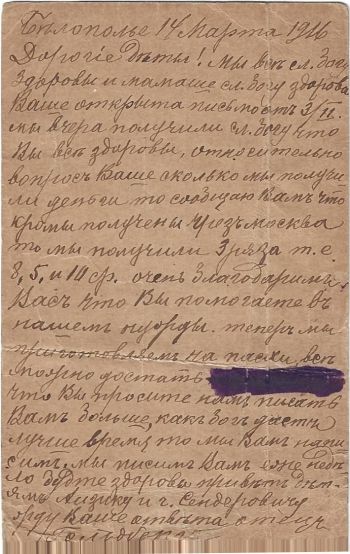 Бѣлополье 14 Марта 1916
Дорогіе Дѣти! мы всѣ сл. богу
здоровы и мамаше сл. богу здорова
Ваше открыта письмо отъ 3/II.
мы вчера получили сл. богу что
Вы всѣ здоровы, относительно
вопросъ Ваше сколько мы получи
ли деньги то сообщаю Вамъ что
кромы получены чрезъ москва
то мы получили 3 раза т. е.
8, 5, и 10 фр. очень благодаримъ
Васъ что Вы помогаете въ
нашемъ нужды. теперъ мы
приготовляемъ на пасхи, всѣ
можно достать
что Вы просите намъ писать
Вамъ больше, какъ богъ дастъ
лучше время, то мы Вамъ напи
симъ. мы писимъ Вамъ еже недѣ
ло будте здоровы приветъ дѣт
ямъ Айзику и г. Сендеровичя
жду Ваше отвѣта